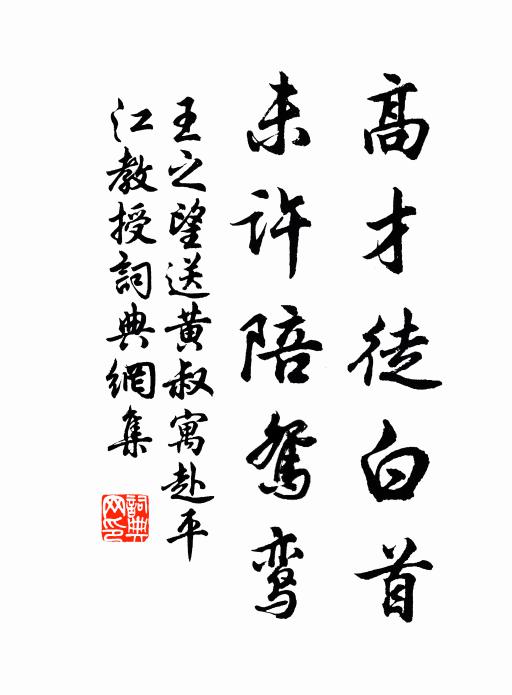 高才徒白首
未许陪鸳鸾
王之望送黄叔寓赴平
江教授詞典網集
詞典
网印